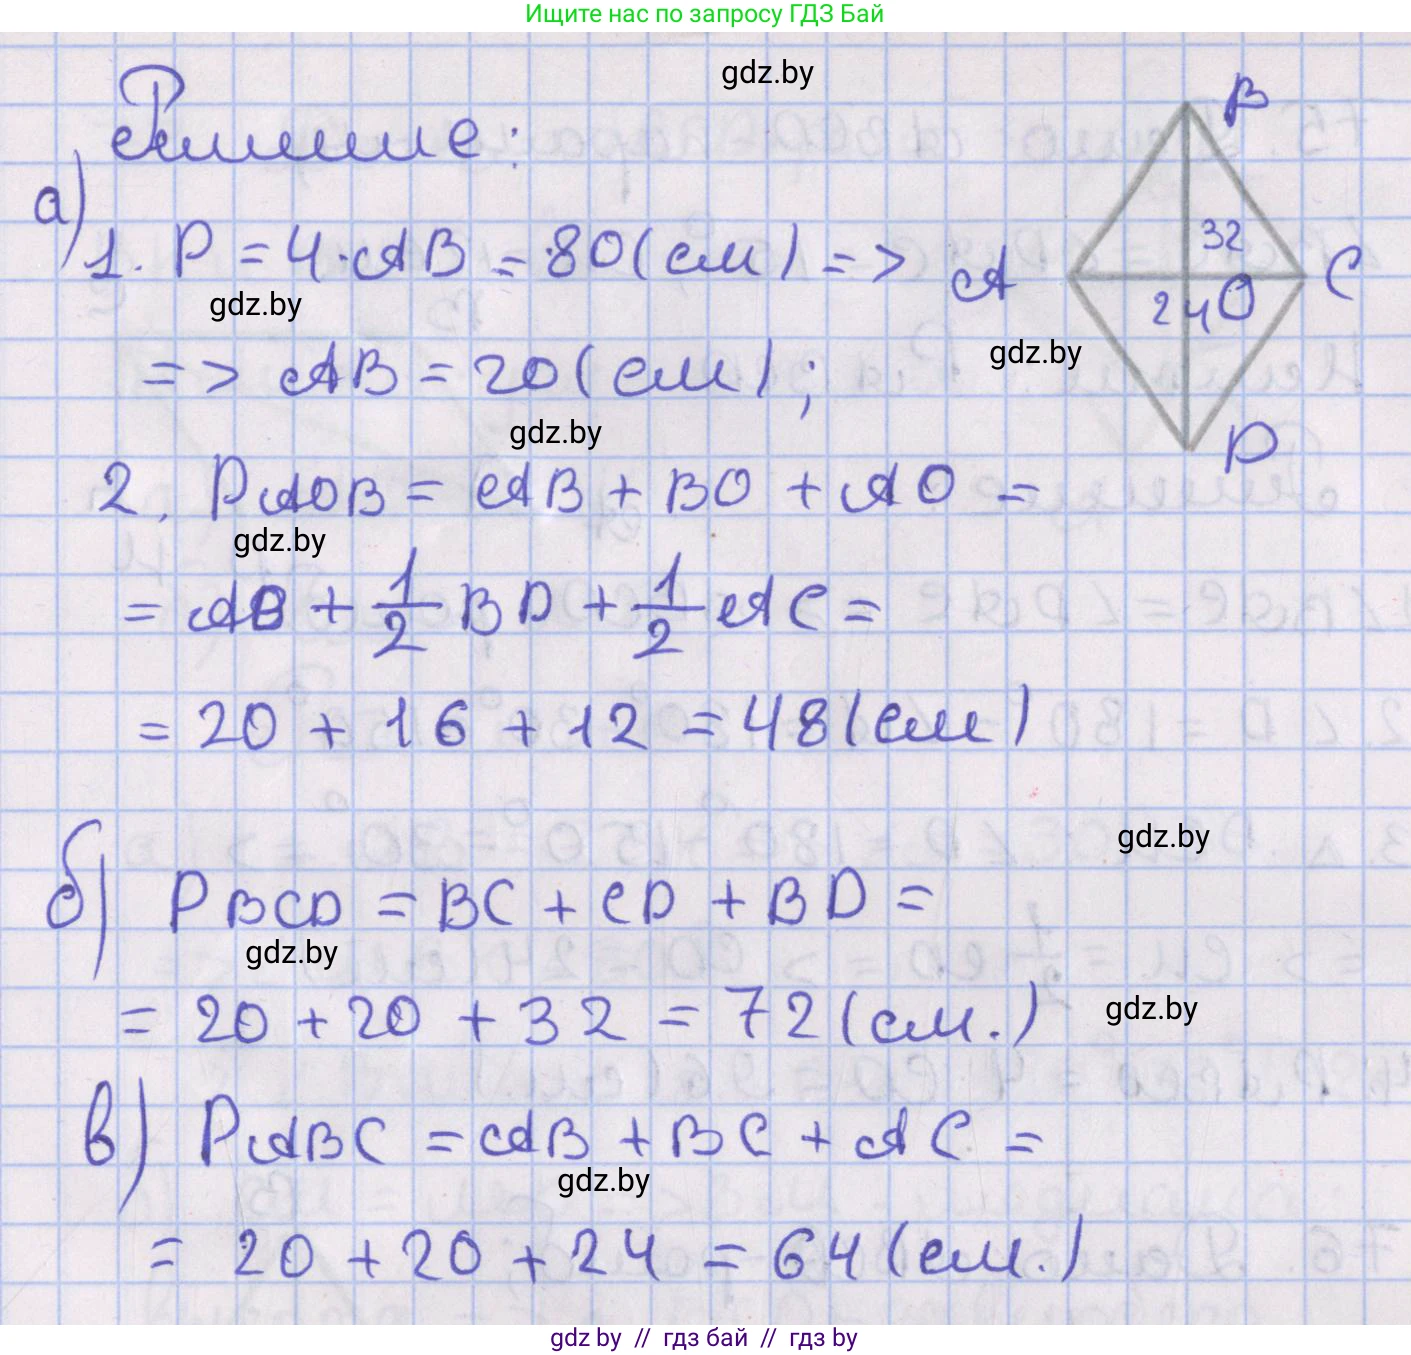 Ищите нас по запросу ГДЗ Бай
gdz.by
Решение:
B
а)
32
1. P = 4·AB = 80(см) =>
A
C
24 O
gdz.by
gdz.by
=> AB = 20(см);
gdz.by
D
2. PAOB = AB + BO + AO =
gdz.by
= AB + 1/2 BD + 1/2 AC =
= 20 + 16 + 12 = 48(см)
gdz.by
б) PBCD = BC + CD + BD =
gdz.by
= 20 + 20 + 32 = 72(см.)
gdz.by
в) PABC = AB + BC + AC =
gdz.by
= 20 + 20 + 24 = 64(см.)
gdz by // гдз бай // гдз by